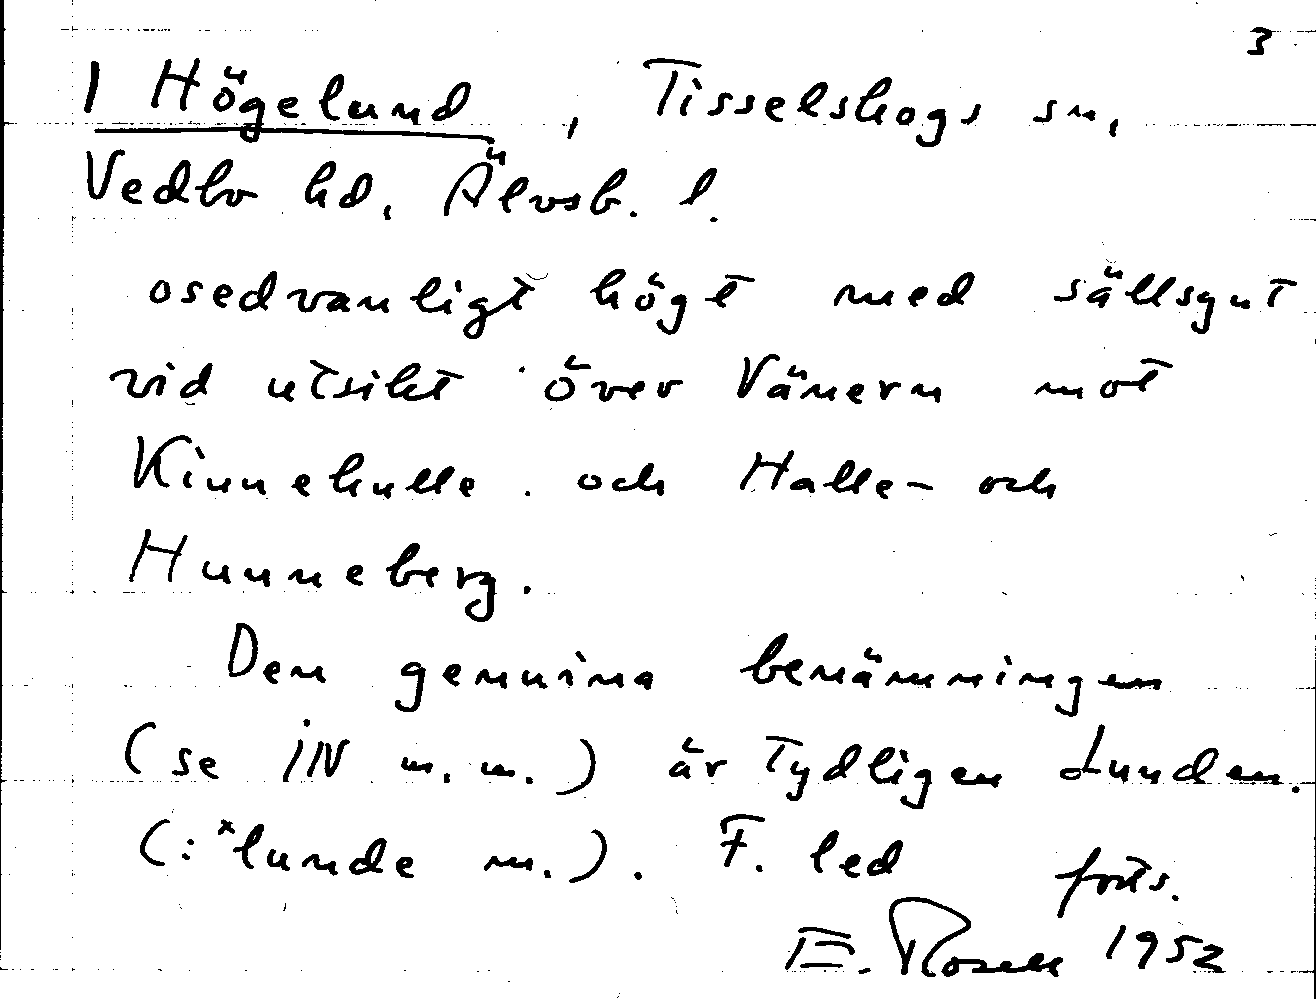 3
1 Högelund, Tisselskogs sn,
Vedbo hd, Älvsb. l.
osedvanligt högt med sällsynt
vid utsikt över Vänern mot
Kinnekulle och Halle- och
Hunneberg.
Den genuina benämningen
(se IN m.m.) är tydligen Lunden.
(: *lunde m.). F. led forts.
E. Rosell 1952